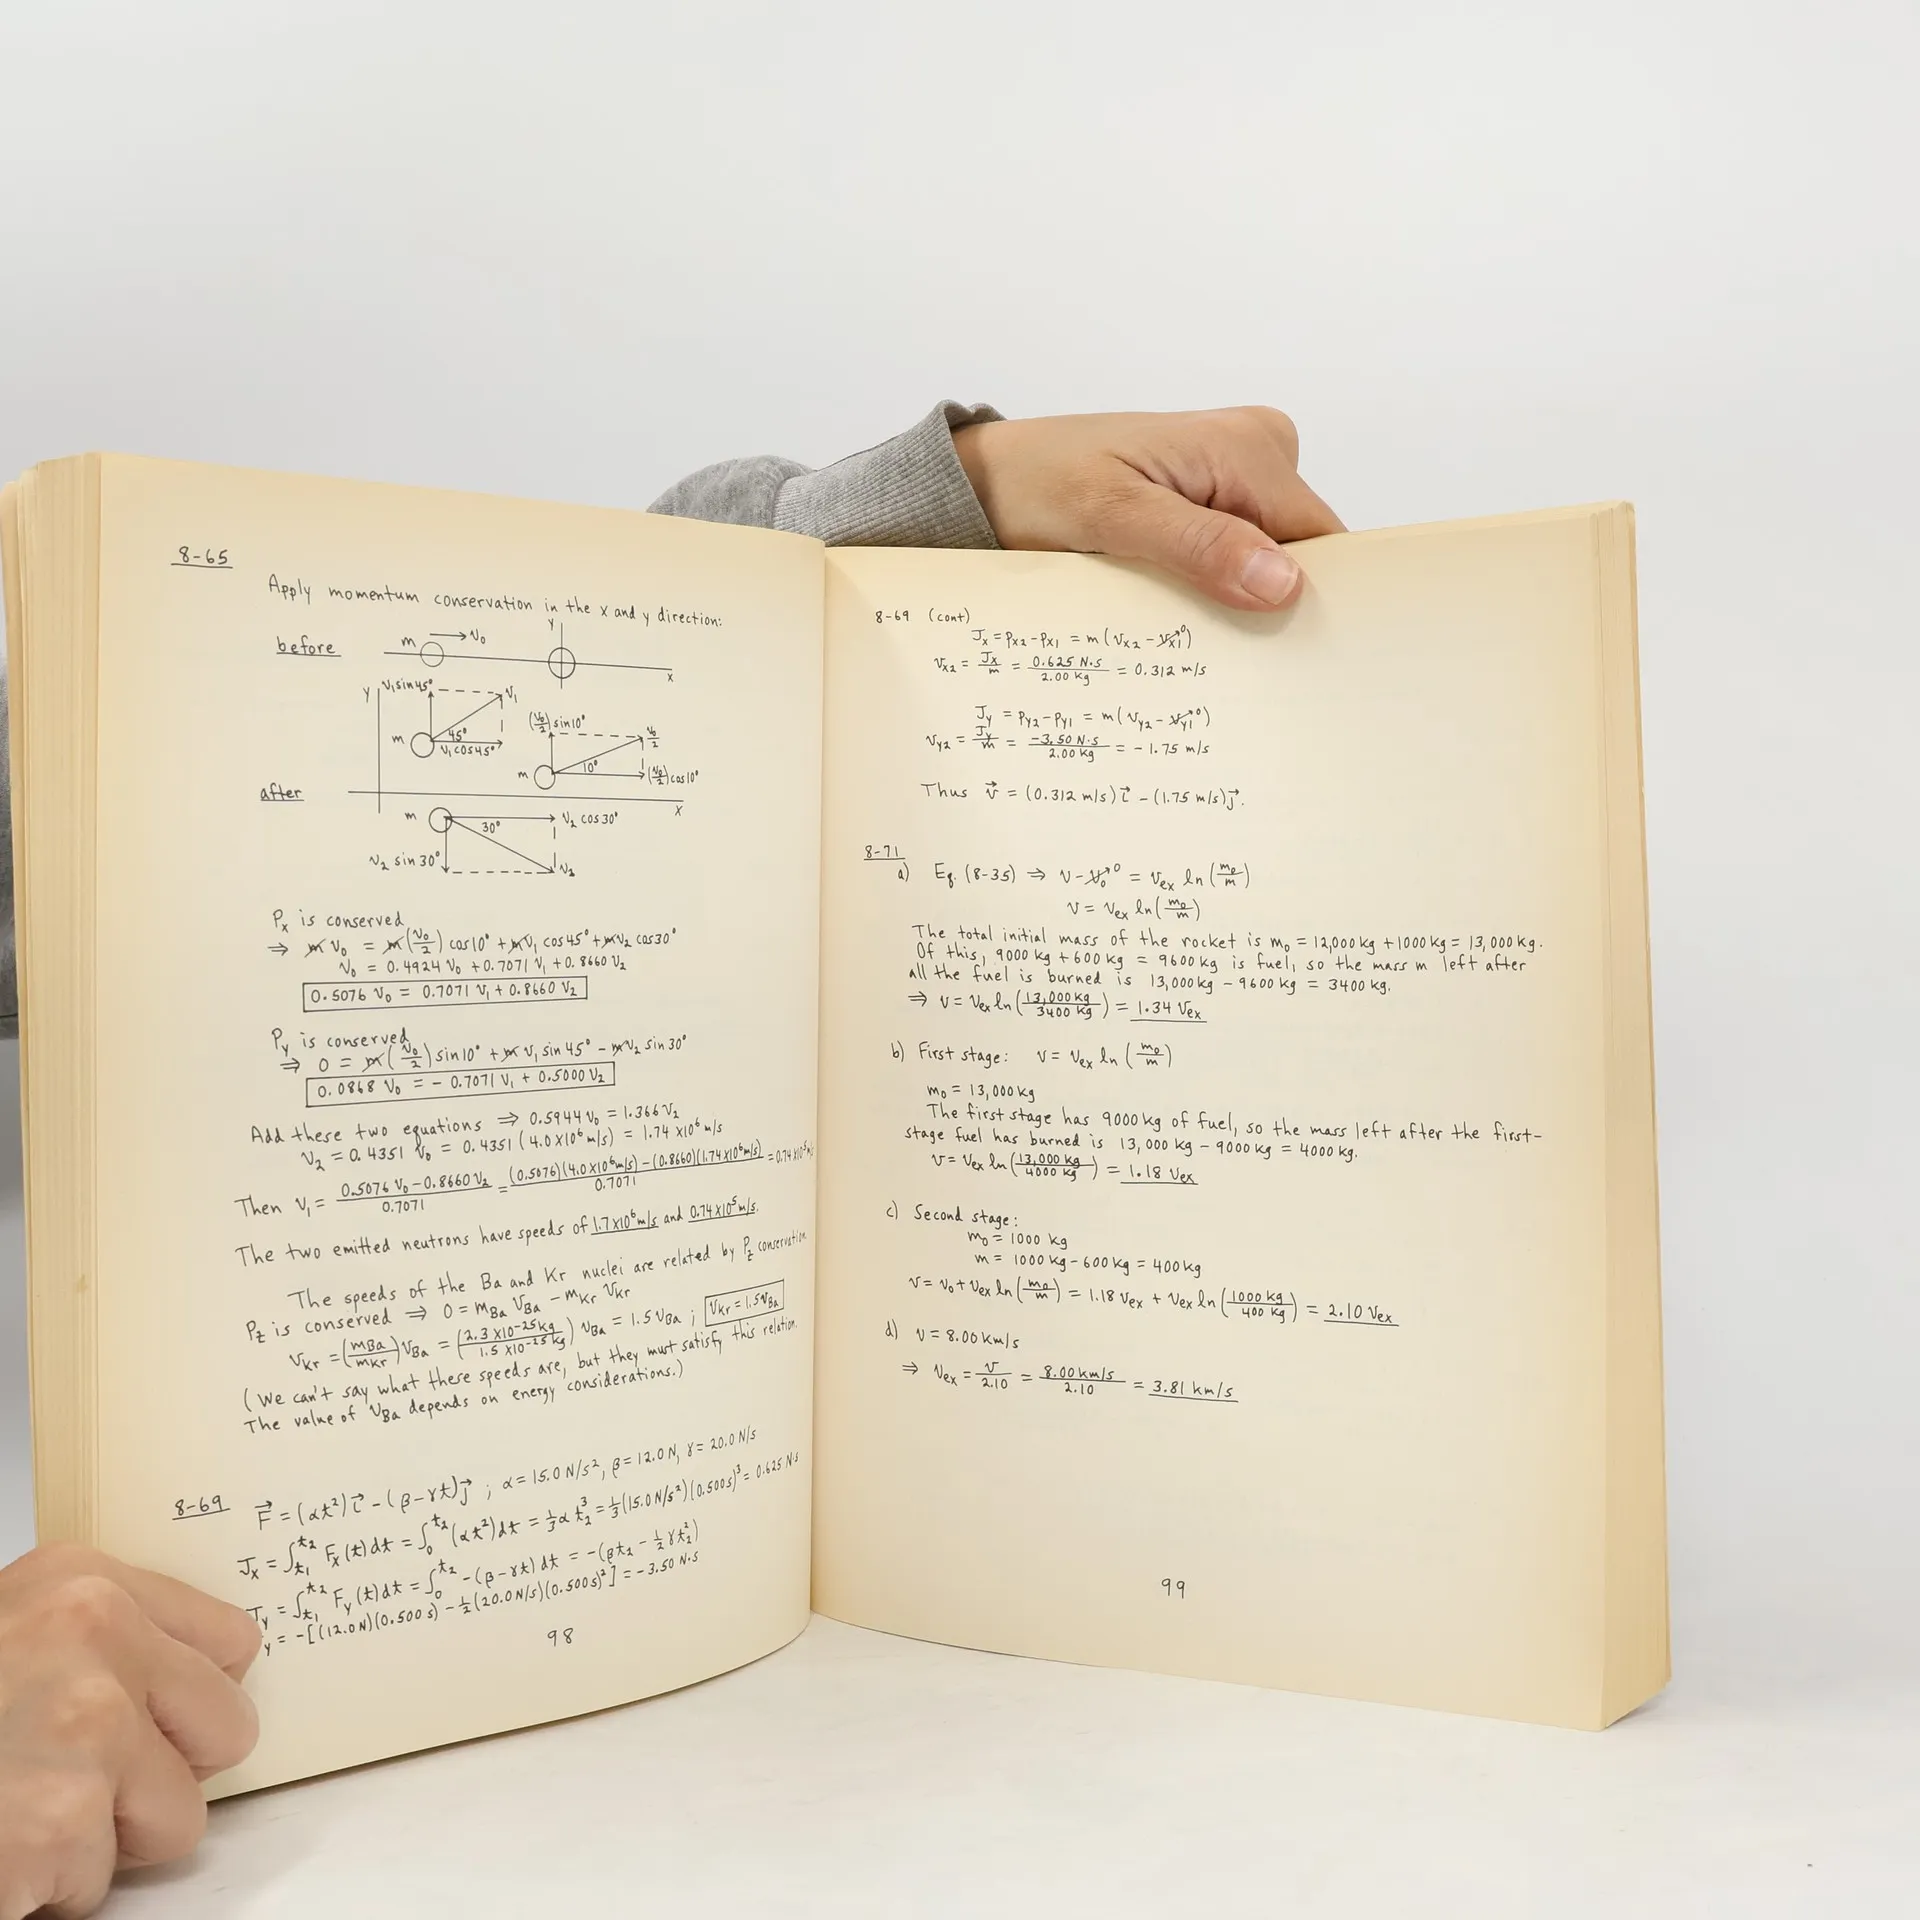 8-65
Apply momentum conservation in the x and y direction:
before
m → v₀
y
x
y
v₁ sin 45°
v₁
m
45°
v₁ cos 45°
(v₀/2) sin 10°
v₀/2
m
10°
(v₀/2) cos 10°
after
x
m
30°
v₂ cos 30°
v₂ sin 30°
v₂
Pₓ is conserved
⇒ m v₀ = m(v₀/2) cos 10° + m v₁ cos 45° + m v₂ cos 30°
v₀ = 0.4924 v₀ + 0.7071 v₁ + 0.8660 v₂
0.5076 v₀ = 0.7071 v₁ + 0.8660 v₂
P_y is conserved
⇒ 0 = m(v₀/2) sin 10° + m v₁ sin 45° - m v₂ sin 30°
0.0868 v₀ = - 0.7071 v₁ + 0.5000 v₂
Add these two equations ⇒ 0.5944 v₀ = 1.366 v₂
v₂ = 0.4351 v₀ = 0.4351 (4.0 x 10⁶ m/s) = 1.74 x 10⁶ m/s
Then v₁ = (0.5076 v₀ - 0.8660 v₂)/0.7071 = ((0.5076)(4.0 x 10⁶ m/s) - (0.8660)(1.74 x 10⁶ m/s))/0.7071 = 0.74 x 10⁵ m/s
The two emitted neutrons have speeds of 1.7 x 10⁶ m/s and 0.74 x 10⁵ m/s.
The speeds of the Ba and Kr nuclei are related by P_z conservation
P_z is conserved ⇒ 0 = m_Ba v_Ba - m_Kr v_Kr
v_Kr = (m_Ba/m_Kr) v_Ba = (2.3 x 10⁻²⁵ kg/1.5 x 10⁻²⁵ kg) v_Ba = 1.5 v_Ba ; v_Kr = 1.5 v_Ba
(We can't say what these speeds are, but they must satisfy this relation.
The value of v_Ba depends on energy considerations.)
8-69 F⃗ = (αt²)i⃗ - (β - γt)j⃗ ; α = 15.0 N/s², β = 12.0 N, γ = 20.0 N/s
Jₓ = ∫_{t₁}^{t₂} Fₓ(t) dt = ∫₀^{t₂} (αt²) dt = ⅓ α t₂³ = ⅓ (15.0 N/s²)(0.500 s)³ = 0.625 N·s
J_y = ∫_{t₁}^{t₂} F_y(t) dt = ∫₀^{t₂} -(β - γt) dt = -(βt₂ - ½ γt₂²)
y = -[(12.0 N)(0.500 s) - ½ (20.0 N/s)(0.500 s)²] = -3.50 N·s
98
8-69 (cont)
Jₓ = pₓ₂ - pₓ₁ = m (vₓ₂ - vₓ₁→0)
vₓ₂ = Jₓ/m = 0.625 N·s/2.00 kg = 0.312 m/s
J_y = p_y2 - p_y1 = m (v_y2 - v_y1→0)
v_y2 = J_y/m = -3.50 N·s/2.00 kg = - 1.75 m/s
Thus v⃗ = (0.312 m/s) i⃗ - (1.75 m/s) j⃗.
8-71
a) Eq. (8-35) ⇒ v - v₀→0 = v_ex ln (m₀/m)
v = v_ex ln (m₀/m)
The total initial mass of the rocket is m₀ = 12,000 kg + 1000 kg = 13,000 kg.
Of this, 9000 kg + 600 kg = 9600 kg is fuel, so the mass m left after
all the fuel is burned is 13,000 kg - 9600 kg = 3400 kg.
⇒ v = v_ex ln (13,000 kg/3400 kg) = 1.34 v_ex
b) First stage: v = v_ex ln (m₀/m)
m₀ = 13,000 kg
The first stage has 9000 kg of fuel, so the mass left after the first-
stage fuel has burned is 13,000 kg - 9000 kg = 4000 kg.
v = v_ex ln (13,000 kg/4000 kg) = 1.18 v_ex
c) Second stage:
m₀ = 1000 kg
m = 1000 kg - 600 kg = 400 kg
v = v₀ + v_ex ln (m₀/m) = 1.18 v_ex + v_ex ln (1000 kg/400 kg) = 2.10 v_ex
d) v = 8.00 km/s
⇒ v_ex = v/2.10 = 8.00 km/s/2.10 = 3.81 km/s
99